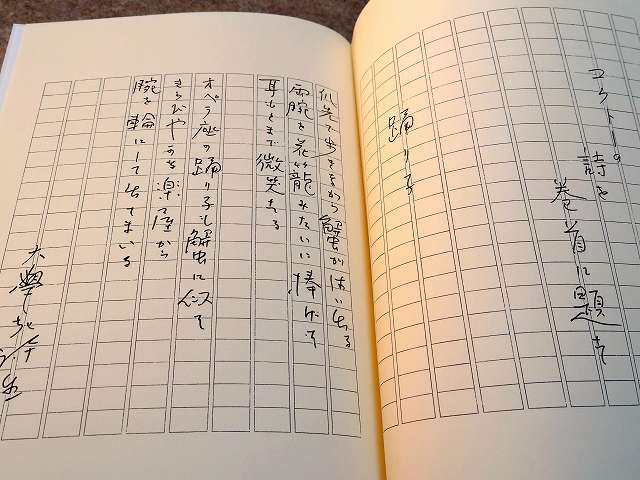 コクトーの詩を
巻首に題す
踊り子
爪先で歩きながら蟹が這い出る
両腕を花籠みたいに捧げて
耳もとまで微笑する
オペラ座の踊り子も蟹に似て
きらびやかな楽屋から
腕を輪にして出てまいる
大學